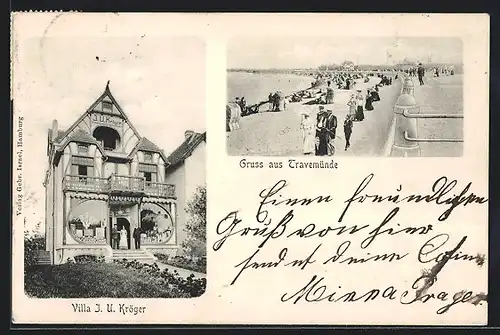 J. U. Kröger
Gruss aus Travemünde
Verlag Gebr. Isrsel, Hamburg
Einen freundlichen
Gruß von hier
sendet deine Cousine
Minna Prager
Villa J. U. Kröger